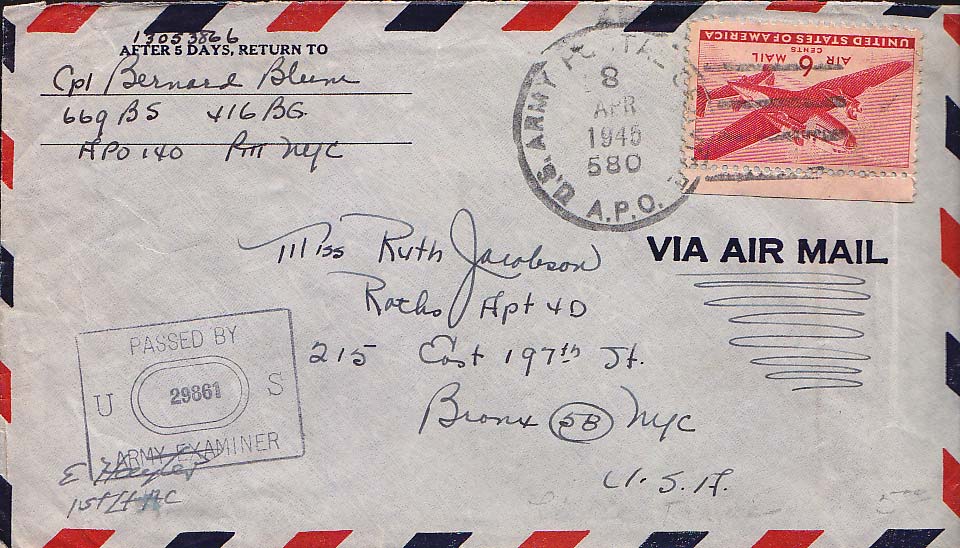 13053866
AFTER 5 DAYS, RETURN TO
Cpl Bernard Blum
669 BS 416 BG.
APO 140 Pm NYC
U.S. ARMY POSTAL
8
APR
1945
580
A.P.O.
UNITED STATES OF AMERICA
AIR 6 MAIL
CENTS
VIA AIR MAIL
Miss Ruth Jacobson
Apt 4D
215 East 197th St.
Bronx 58 NYC
U.S.A.
PASSED BY
U 29861 S
ARMY EXAMINER
E
1st Lt AC